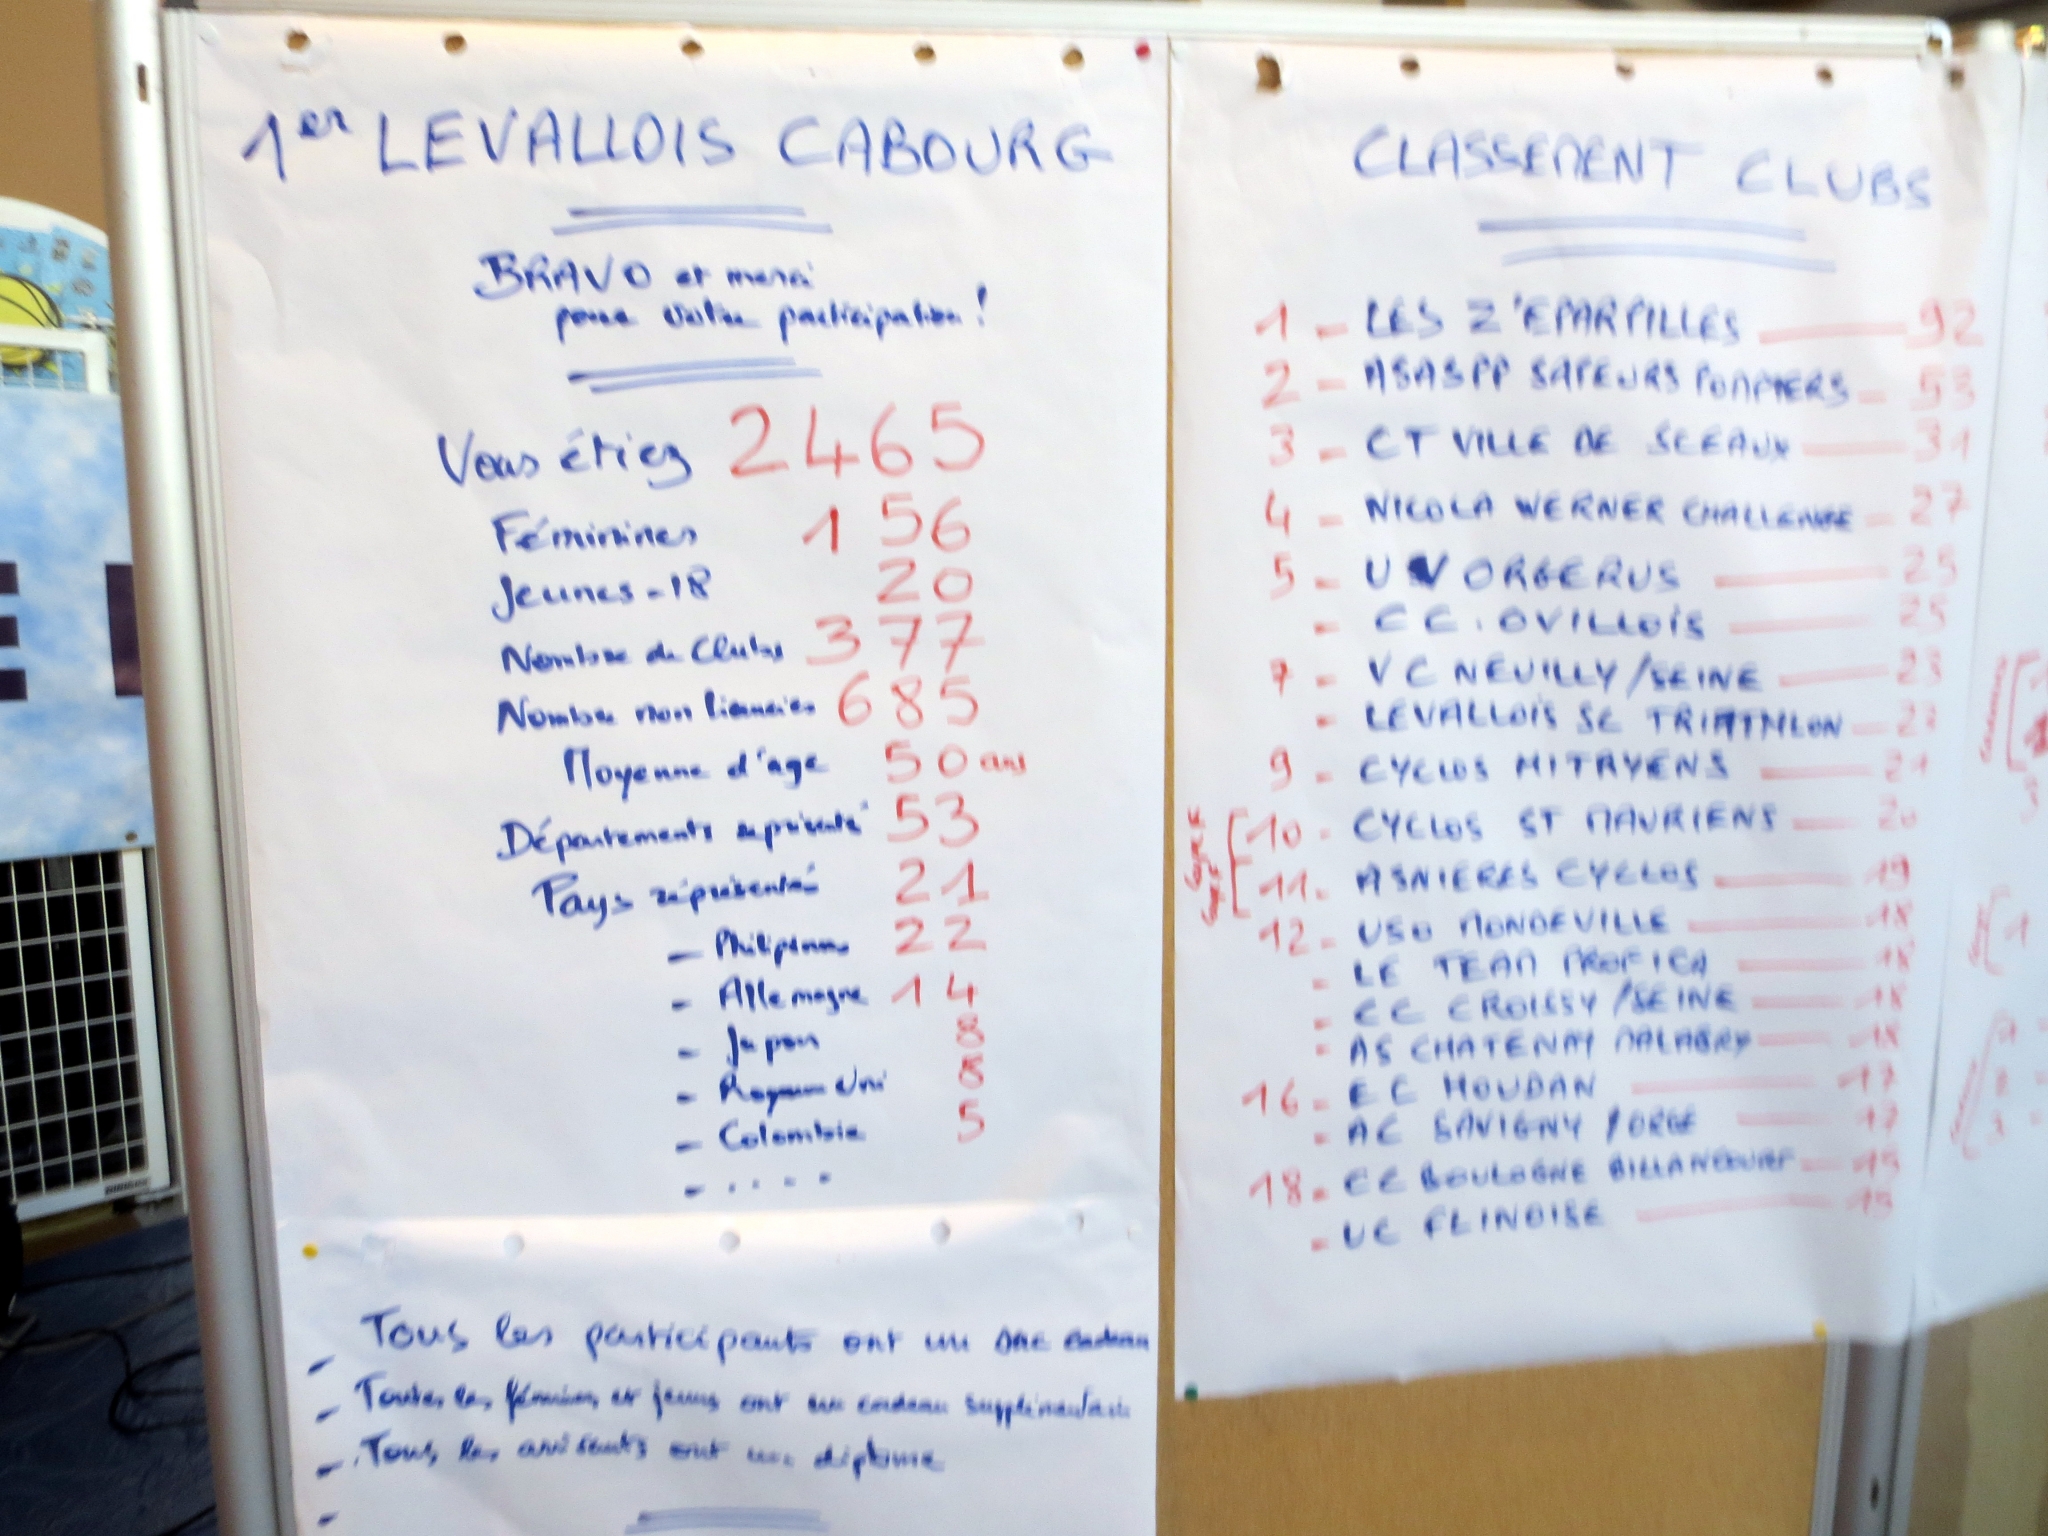 1er LEVALLOIS CABOURG
BRAVO et merci
pour votre participation !
Vous étiez 2465
Féminines 156
Jeunes -18 20
Nombre de Clubs 377
Nombre non licenciés 685
Moyenne d'age 50 ans
Départements représenté 53
Pays réprésentés 21
- Philippines 22
- Allemagne 14
- Japon 8
- Royaume Uni 8
- Colombie 5
- ....
- Tous les participants ont un sac cadeau
- Toutes les féminines et jeunes ont un cadeau supplémentaire
- Tous les arrivants ont un diplome
-
CLASSEMENT CLUBS
1 - LES Z'EPARPILLES 92
2 - ASASPP SAPEURS POMPIERS 53
3 - CT VILLE DE SCEAUX 31
4 - NICOLA WERNER CHALLENGE 27
5 - U V ORGERUS 25
- C C. OVILLOIS 25
7 - V C NEUILLY/SEINE 23
- LEVALLOIS SC TRIATHLON 23
9 - CYCLOS MITRYENS 21
10 - CYCLOS ST MAURIENS 20
11 - ASNIERES CYCLOS 19
12 - USO MONDEVILLE 18
- LE TEAM PROFICA 18
- CC CROISSY/SEINE 18
- AS CHATENAY MALABRY 18
16 - EC HOUDAN 17
- AC SAVIGNY/ORGE 17
18 - CC BOULOGNE BILLANCOURT 15
- UC FLINOISE 15